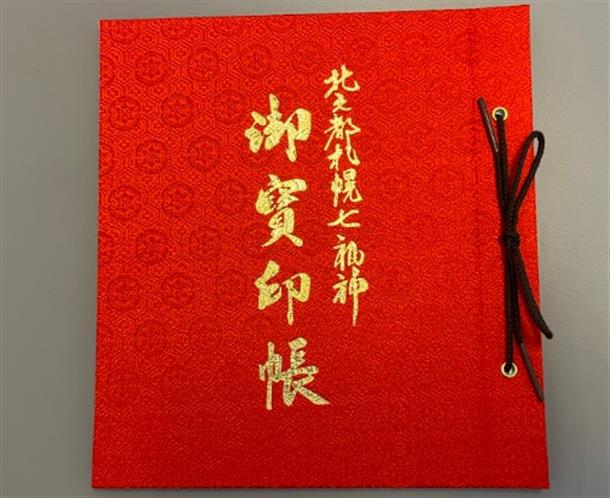 北之都札幌七福神
御寳印帳